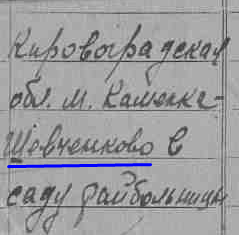 Кировоградская
обл. м. Каменка-
Шевченково в
саду райбольницы